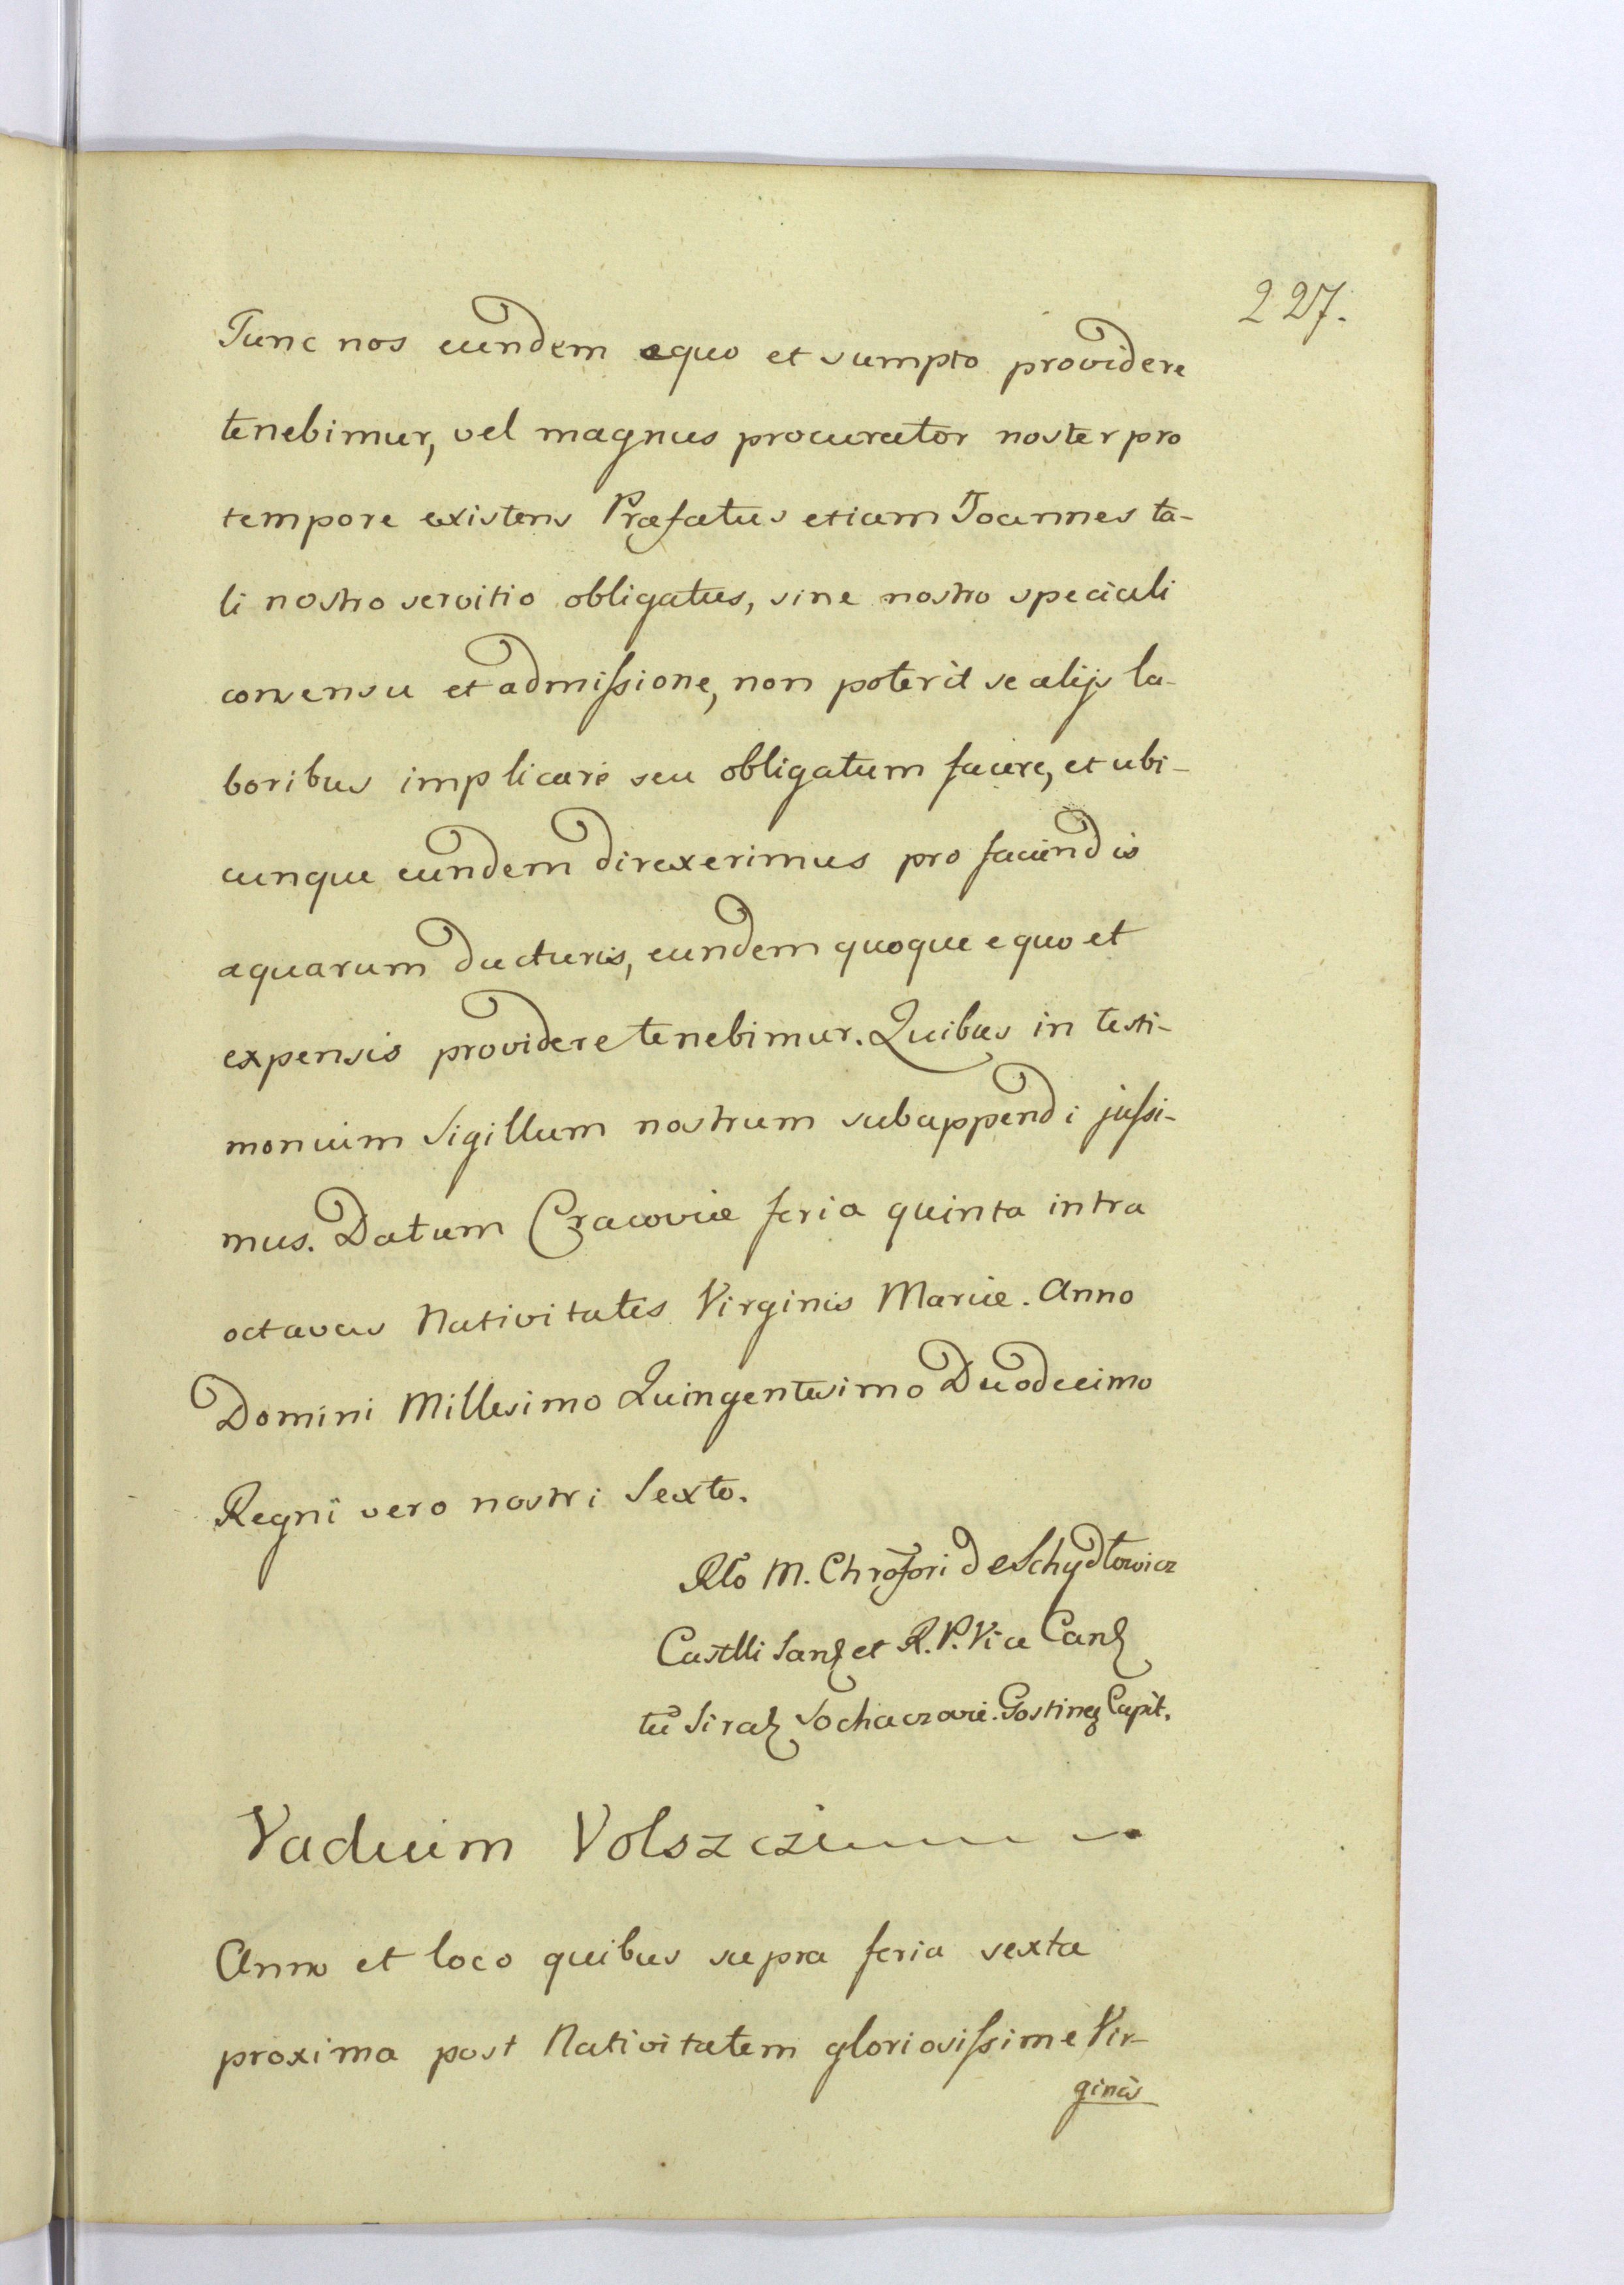 227.
Tunc nos eundem equo et sumpto providere
tenebimur, vel magnus procurator noster pro
tempore existens Præfatus etiam Joannes ta-
li nostro servitio obligatus, sine nostro speciali
consensu et admissione, non poterit se alijs la-
boribus implicare seu obligatum facere, et ubi-
cunque eundem direxerimus pro faciendis
aquarum ducturis, eundem quoque equo et
expensis providere tenebimur. Quibus in testi-
monium Sigillum nostrum subappendi jussi-
mus. Datum Cracoviæ feria quinta intra
octavas Nativitatis Virginis Mariæ. Anno
Domini Millesimo Quingentesimo Duodecimo
Regni vero nostri Sexto.
Rlo M. Chrōfori de Schydłowicz
Castlli Sanđ et R. P. Vice Canc
tū Sirađ Sochaczovie. Gostineñ Capit.
Vadium Volszczi
Anno et loco quibus supra feria sexta
proxima post Nativitatem gloriosissime Vir-
ginis